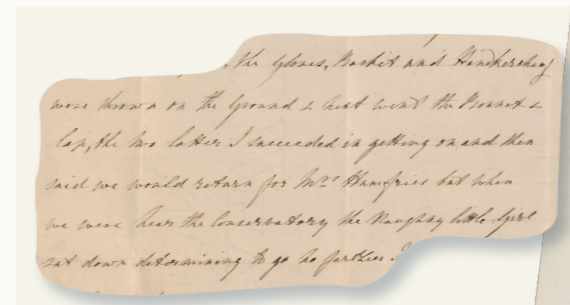 the Gloves, Baskit and Handkercheif
were thrown on the Ground & next went the Bonnet &
Cap, the two latter I succeeded in getting on and then
said we would return for Mrs Humfries but when
we were near the Conservatory the Naughty little Girl
sat down determining to go no further